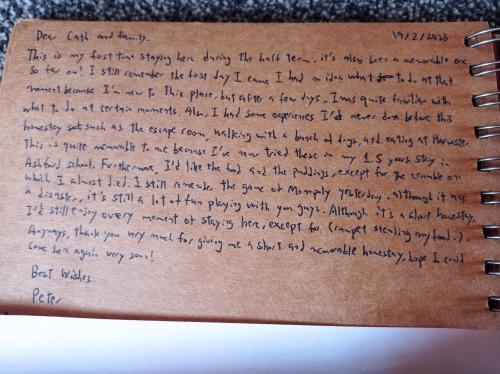 Dear Cath and family. 19/2/2023
This is my first time staying here during the half term, it's also been a memorable one
so far on! I still remember the first day I came I had on idea what to do at that
moment because I'm new to this place, but after a few days, I was quite familiar with
what to do at certain moments. Also, I had some experiences I'd never done before this
homestay such as the escape room, walking with a bunch of dogs, and eating at Harvester.
This is quite memorable to me because I've never tried these in my 1.5 years stay in
Ashford school. Furthermore, I'd like the food and the puddings, except for the crumble one
which I almost died. I still remember the game of Monopoly yesterday, although it was
a disaster, it's still a lot of fun playing with you guys. Although it's a short homestay,
I'd still enjoy every moment of staying here, except for (crumpet stealing my food :).
Anyways, thank you very much for giving me a short and memorable homestay, hope I could
come here again very soon!
Best Wishes
Peter